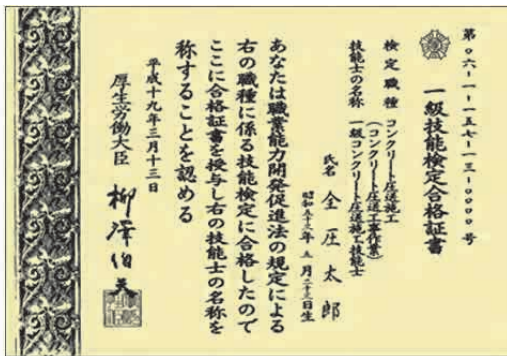 第〇六-一-一五七-一三-〇〇〇〇号
一級技能検定合格証書
検定職種 コンクリート圧送施工
(コンクリート圧送工事作業)
技能士の名称 一級コンクリート圧送施工技能士
氏名 全圧太郎
昭和五十三年五月二十三日生
あなたは職業能力開発促進法の規定による
右の職種に係る技能検定に合格したので
ここに合格証書を授与し右の技能士の名称を
称することを認める
平成十九年三月十三日
厚生労働大臣 柳澤伯夫